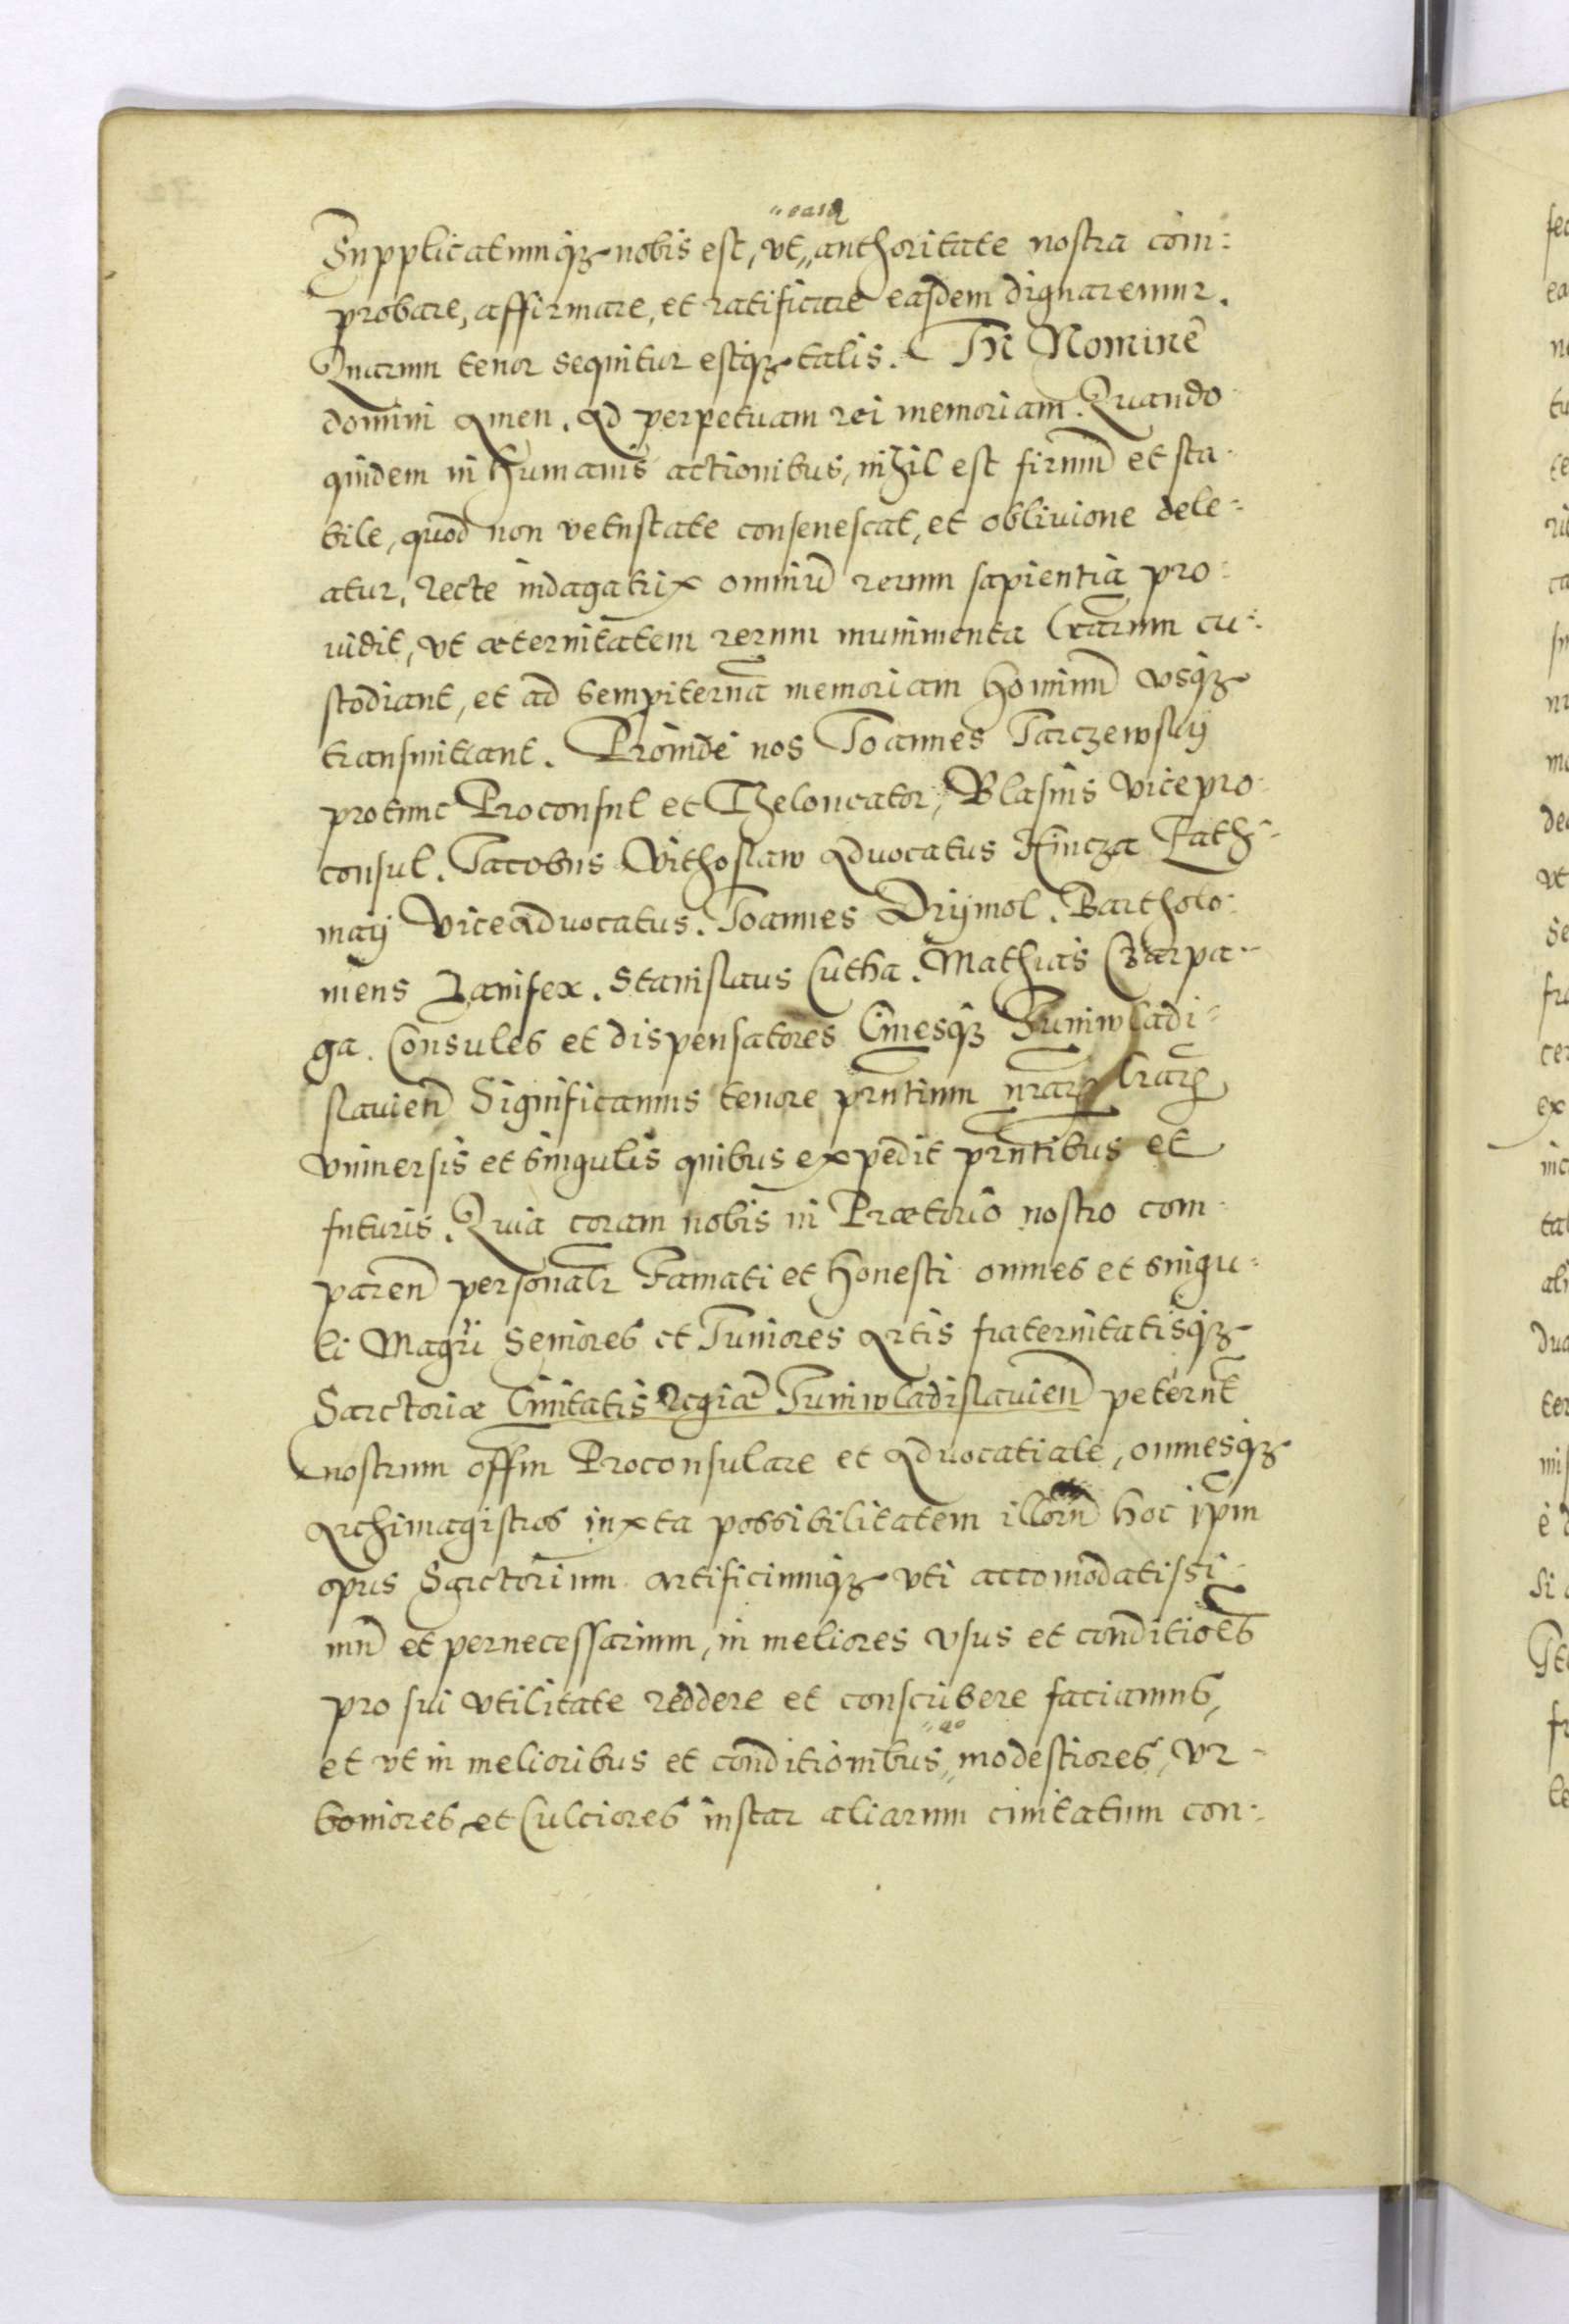 „easq
Supplicatumq3 nobis est, vt „ authoritate nostra com:
probare, affirmare, et ratificare easdem dignaremur.
Quarum tenor sequitur estq3 talis. In Nomine
domini Amen. Ad perpetuam rei memoriam. Quando
quidem in humanis actionibus, nihil est firmū et sta
bile, quod non vetustate consenescat, et obliuione dele:
atur, recte indagatrix omniū rerum sapientia pro:
uidit, vt æternitatem rerum munimenta lrarum cu:
stodiant, et ad sempiternā memoriam hominū vsq3
transmittant. Proinde nos Joannes Tarczewsky
protunc Proconsul et Theloneator, Blasius vicepro
consul. Jacobus Vithoslaw Aduocatus Hincza Rath
may Viceaduocatus. Joannes Drymol. Bartholo:
meus Lanifex. Stanislaus Cutha. Mathias Czarpa
ga. Consules et dispensatores Ciuesq3 Juniwladi:
slauień Significamus tenore prntium nrar lrar
vniuersis et singulis quibus expedit prntibus et
futuris. Quia coram nobis in Prætorio nostro com
pareń personalr Famati et honesti omnes et singu:
li Magri Seniores et Juniores Artis fraternitatisq3
Sarctoriæ Ciuitatis Regiæ Juniwladislauień peternt
nostrum offm Proconsulare et Aduocatiale, omnesq3
Archimagistros iuxta possibilitatem illorū hoc ipm
opus Sarctorium artificiumq3 vti accomodatissi
mū et pernecessarium, in meliores vsus et conditioēs
pro sui vtilitate reddere et conscribere faciamus,
„ ac
et vt in melioribus et conditionibus „ modestiores, vr
baniores, et Cultiores instar aliarum ciuitatum con: